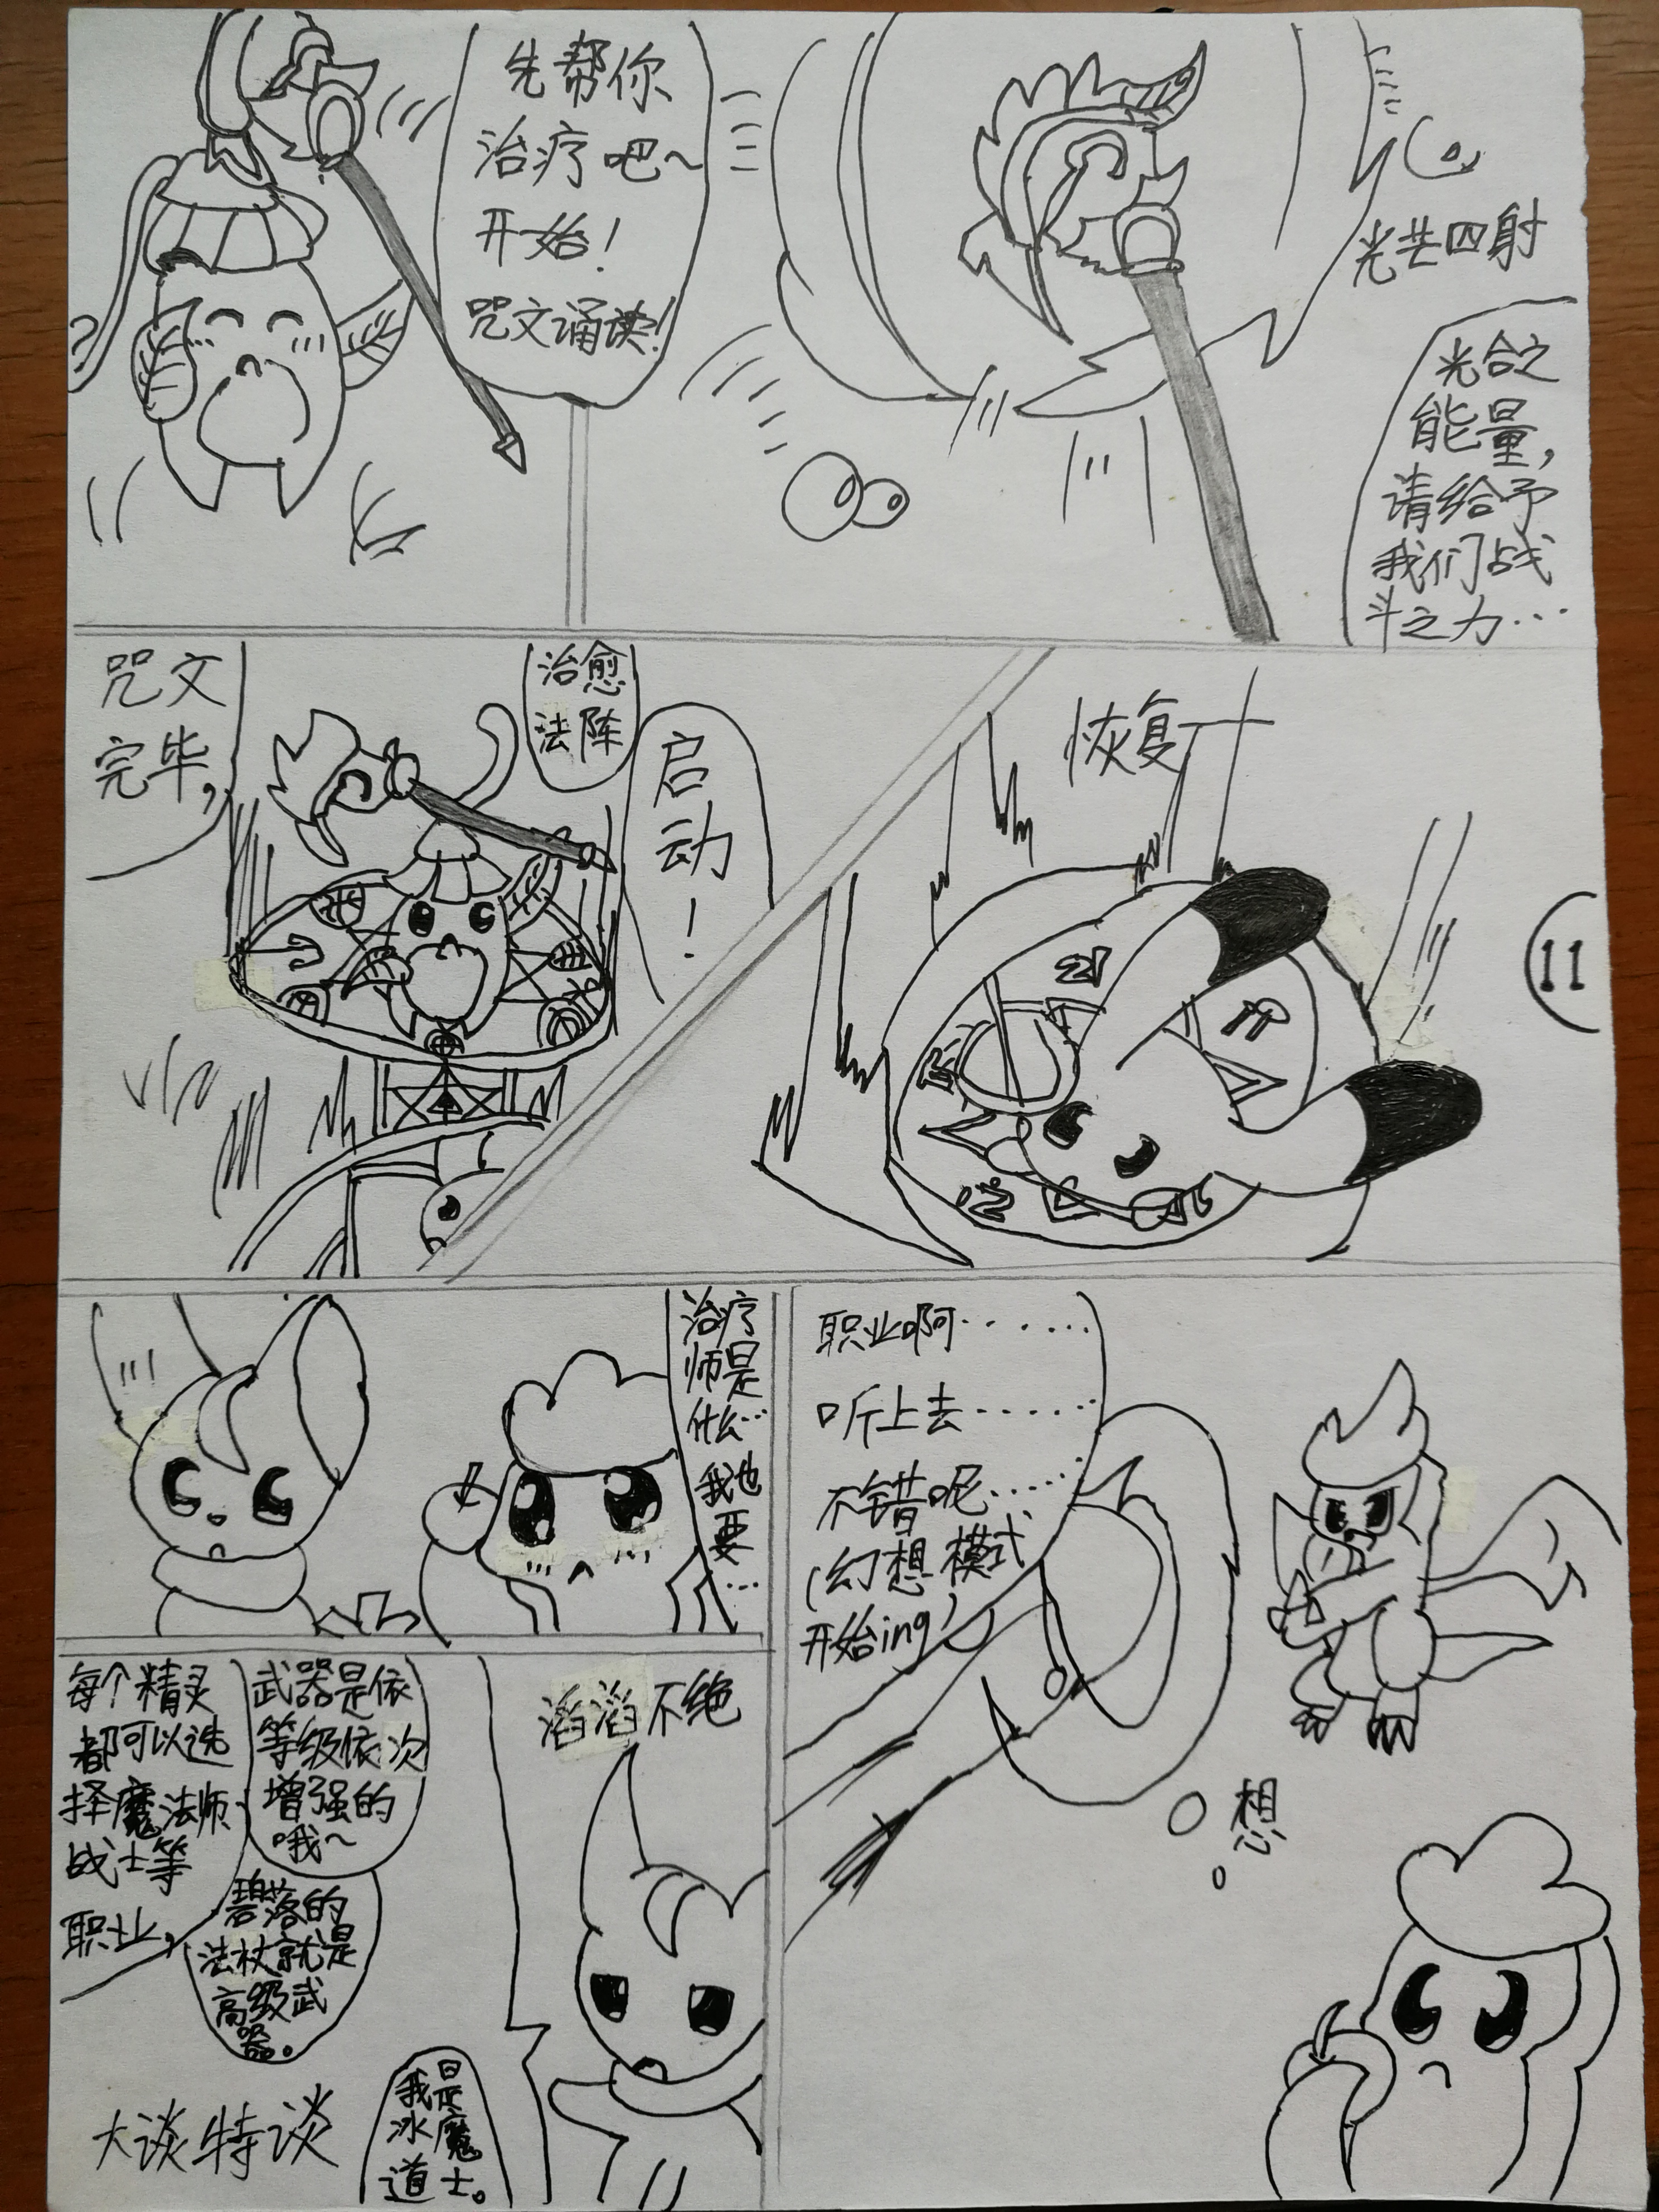 先帮你
治疗吧~
开始!
咒文诵读!
光芒四射
光合之
能量,
请给予
我们战
斗之力…
咒文
完毕,
治愈
法阵
启
动
!
恢复
11
治疗
师是
什么…
我也
要
…
职业啊……
听上去……
不错呢……
(幻想模式
开始ing)
想
每个精灵
都可以选
择魔法师
战士等
职业,
武器是依
等级依次
增强的
哦~
碧落的
法杖就是
高级武
器。
滔滔不绝
大谈特谈
我是
冰魔
道士。